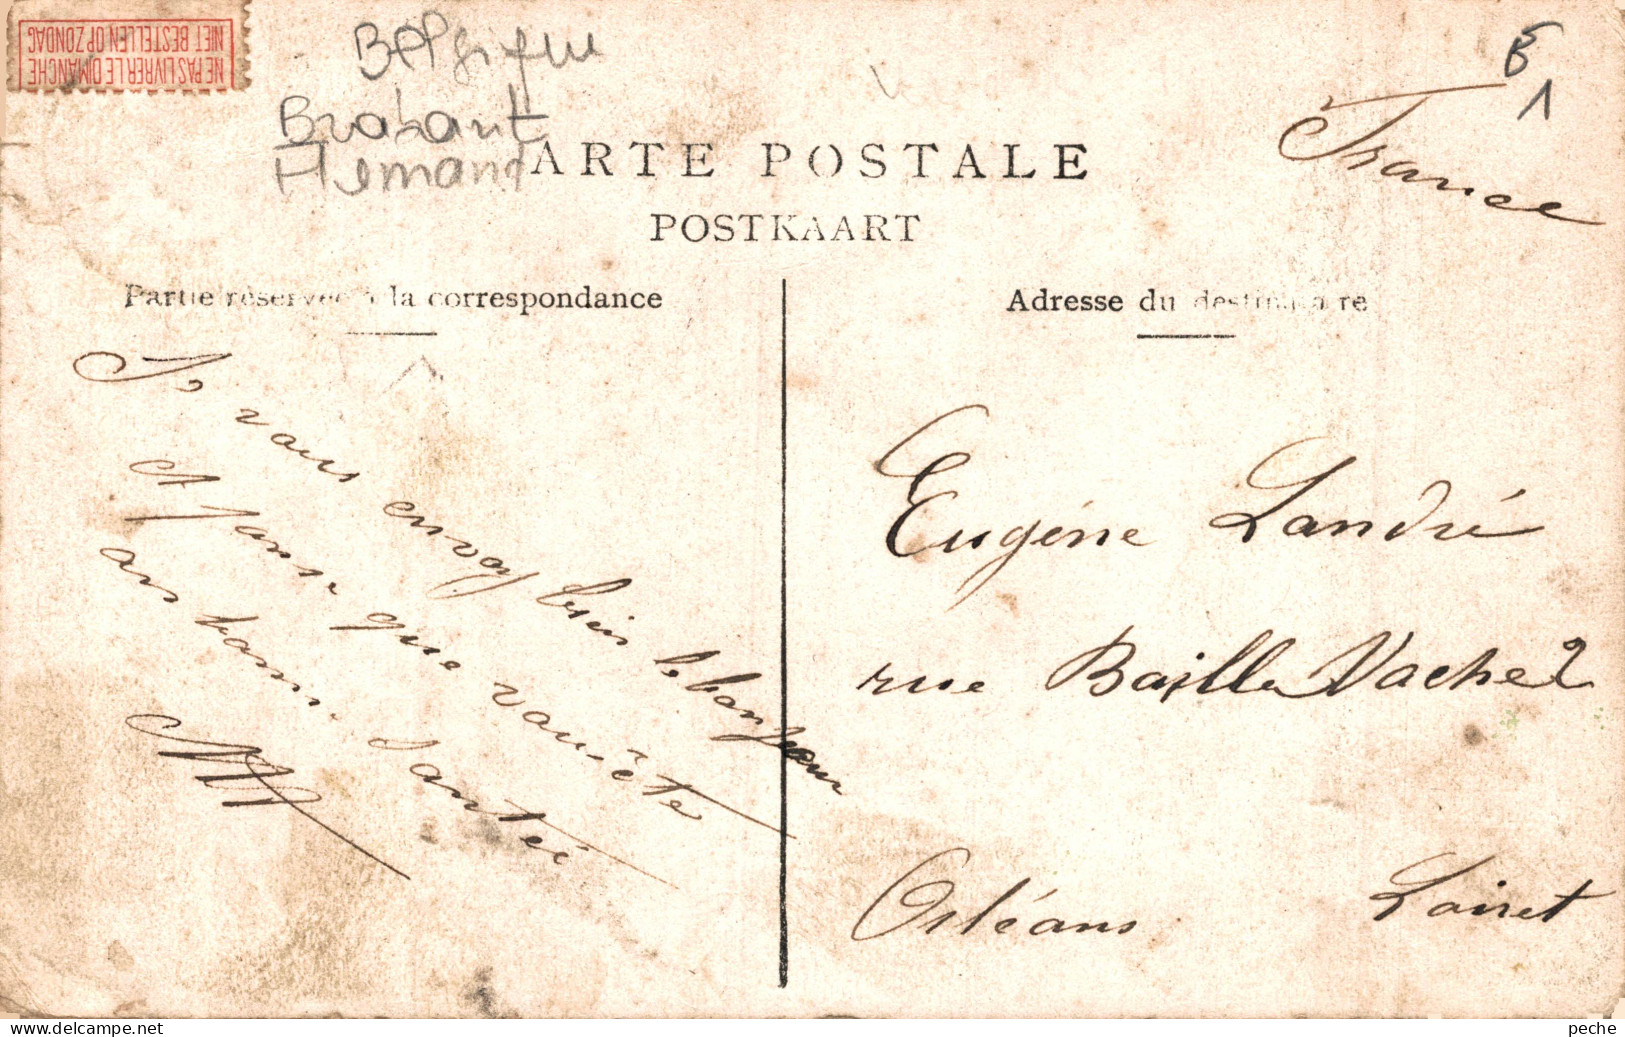 NE PAS LIVRER LE DIMANCHE
NIET BESTELLEN OP ZONDAG
Belgique
Brabant
Flamand
ARTE POSTALE
POSTKAART
B
1
France
Partie réservée à la correspondance
Adresse du destinataire
Je vous envoy bien le bonjour
et pense que vous ête
en bonne santée
Eugéne Landré
rue Baille Vache 2
Orléans Loiret
peche